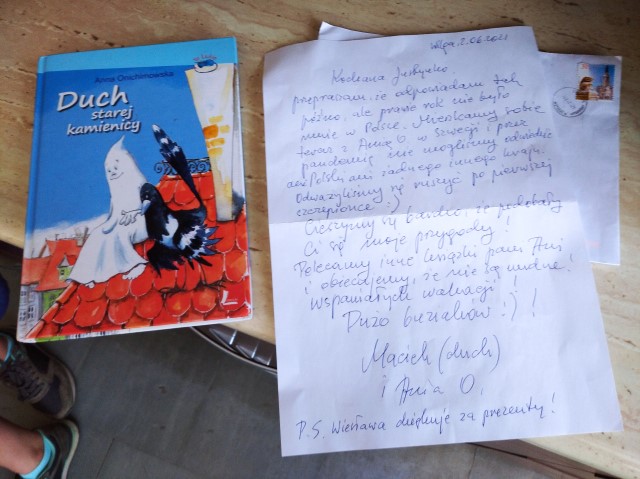 Anna Onichimowska
Duch
starej
kamienicy
2.06.2021
Kochana Justynko,
przepraszam, że odpowiadam tak
późno, ale prawie rok nie było
mnie w Polsce. Mieszkamy sobie
teraz z Anią O. w Szwecji i przez
pandemię nie mogliśmy odwiedzić
ani Polski ani żadnego innego kraju.
Odważyliśmy się ruszyć po pierwszej
szczepionce :)
Cieszymy się bardzo, że podobały
Ci się moje przygody!
Polecamy inne książki pani Ani
i obiecujemy, że nie są nudne!
Wspaniałych wakacji!
Dużo buziaków :)!
Maciek (duch)
i Ania O.
P.S. Wiesława dziękuje za prezenty!